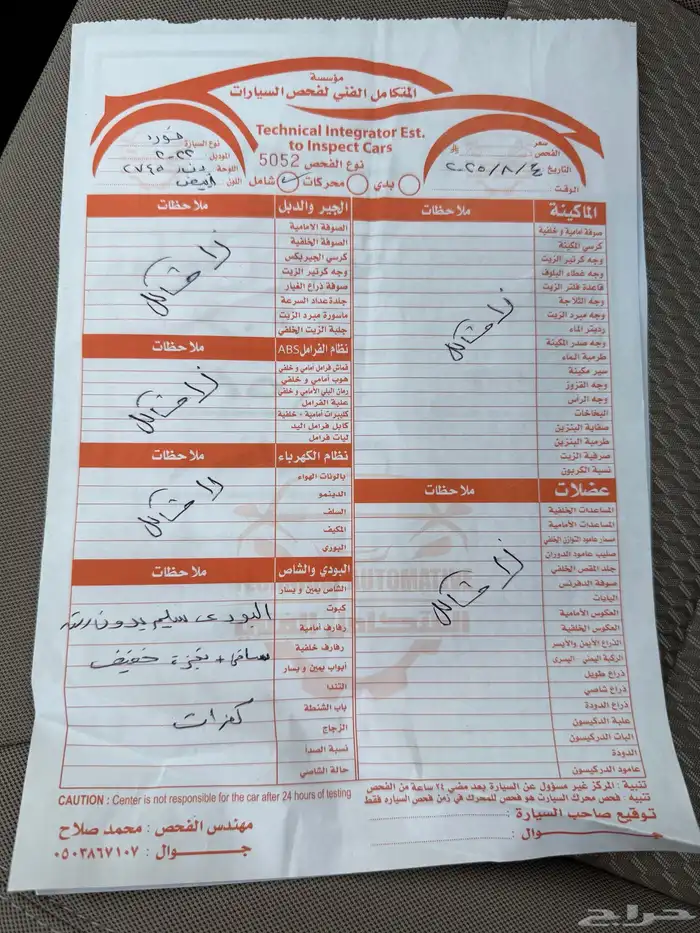 مؤسسة
المتكامل الفني لفحص السيارات
Technical Integrator Est.
to Inspect Cars
نوع الفحص 5052
بدي محركات شامل
سعر الفحص
التاريخ ٢٠٢٥/٨/٤
الوقت
نوع السيارة فورد
الموديل ٢٠٢٢
اللوحة ٢٧٤٥
اللون أبيض
الماكينة ملاحظات
صوفة أمامية و خلفية
كرسي المكينة
وجه كرتير الزيت
وجه غطاء البلوف
قاعدة فلتر الزيت
وجه الثلاجة
وجه مبرد الزيت
رديتر الماء
وجه صدر المكينة
طرمبة الماء
سير مكينة
وجه القزوز
وجه الرأس
البخاخات
صفاية البنزين
طرمبة البنزين
صرفية الزيت
نسبة الكربون
عضلات ملاحظات
المساعدات الخلفية
المساعدات الأمامية
مسمار عامود التوازن الخلفي
صليب عامود الدوران
جلد المقص الخلفي
صوفة الدفرنس
اليايات
العكوس الأمامية
العكوس الخلفية
الذراع الأيمن والأيسر
الركبة اليمنى اليسرى
ذراع طويل
ذراع شاصي
ذراع الدودة
علبة الدركسون
اليات الدركسيون
الدودة
عامود الدركسون
الجير والدبل ملاحظات
الصوفة الامامية
الصوفة الخلفية
كرسي الجيربكس
وجه كرتير الزيت
صوفة ذراع الغيار
جلدة عداد السرعة
ماسورة مبرد الزيت
جلبة الزيت الخلفي
نظام الفرامل ABS ملاحظات
قماش فرامل أمامي و خلفي
هوب أمامي و خلفي
رمان البلي الأمامي و خلفي
علبة الفرامل
كليبرات أمامية - خلفية
كابل فرامل اليد
ليات فرامل
نظام الكهرباء ملاحظات
بالونات الهواء
الدينمو
السلف
المكيف
البوري
البودي والشاص ملاحظات
الشاص يمين و يسار
كبوت
رفارف أمامية
رفارف خلفية
أبواب يمين و يسار
التندا
باب الشنطة
الزجاج
نسبة الصدأ
حالة الشاصي
البودي سليم بدون رش
خفيف
كفرات
تنبية : المركز غير مسؤول عن السيارة بعد مضي ٢٤ ساعة من الفحص
تنبية : فحص محرك السيارت هو فحص للمحرك في زمن فحص السياره فقط
توقيع صاحب السيارة :
جـوال :
CAUTION : Center is not responsible for the car after 24 hours of testing
مهندس الفحص : محمد صلاح
جـوال : ٠٥٠٣٨٦٧١٠٧
حراج